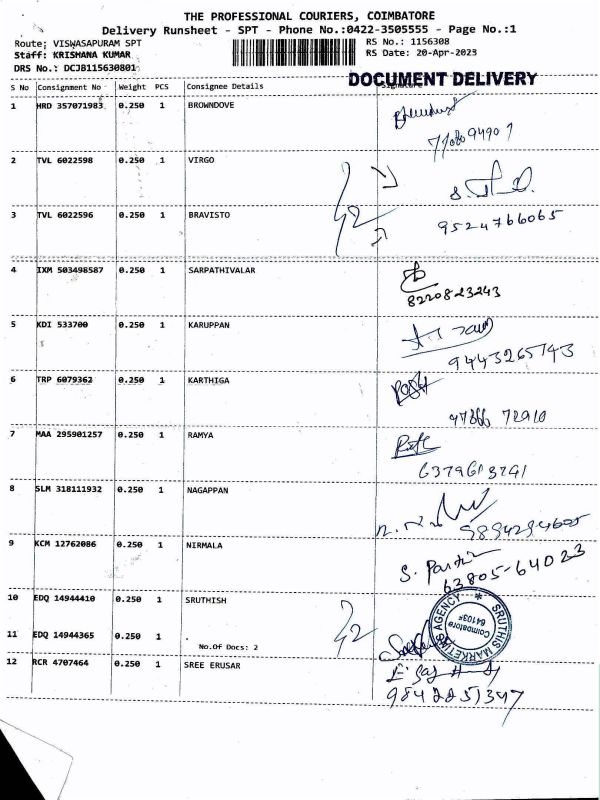 THE PROFESSIONAL COURIERS, COIMBATORE
Delivery Runsheet - SPT - Phone No.:0422-3505555 - Page No.:1
Route: VISWASAPURAM SPT
RS No.: 1156308
Staff: KRISHANA KUMAR
RS Date: 20-Apr-2023
DRS No.: DCJB115630801
DOCUMENT DELIVERY
S No Consignment No Weight PCS Consignee Details
1 HRD 357071983 0.250 1 BROWNDOVE
2 TVL 6022598 0.250 1 VIRGO
3 TVL 6022596 0.250 1 BRAVISTO
9524766065
4 IXM 503498587 0.250 1 SARPATHIVALAR
8220823243
5 KDI 533700 0.250 1 KARUPPAN
9443265743
6 TRP 6079362 0.250 1 KARTHIGA
7 MAA 295901257 0.250 1 RAMYA
8 SLM 318111932 0.250 1 NAGAPPAN
9 KCM 12762086 0.250 1 NIRMALA
63805-64023
10 EDQ 14944410 0.250 1 SRUTHISH
11 EDQ 14944365 0.250 1
No.Of Docs: 2
SRUTHIS MARKETING AGENCY
Coimbatore
12 RCR 4707464 0.250 1 SREE ERUSAR